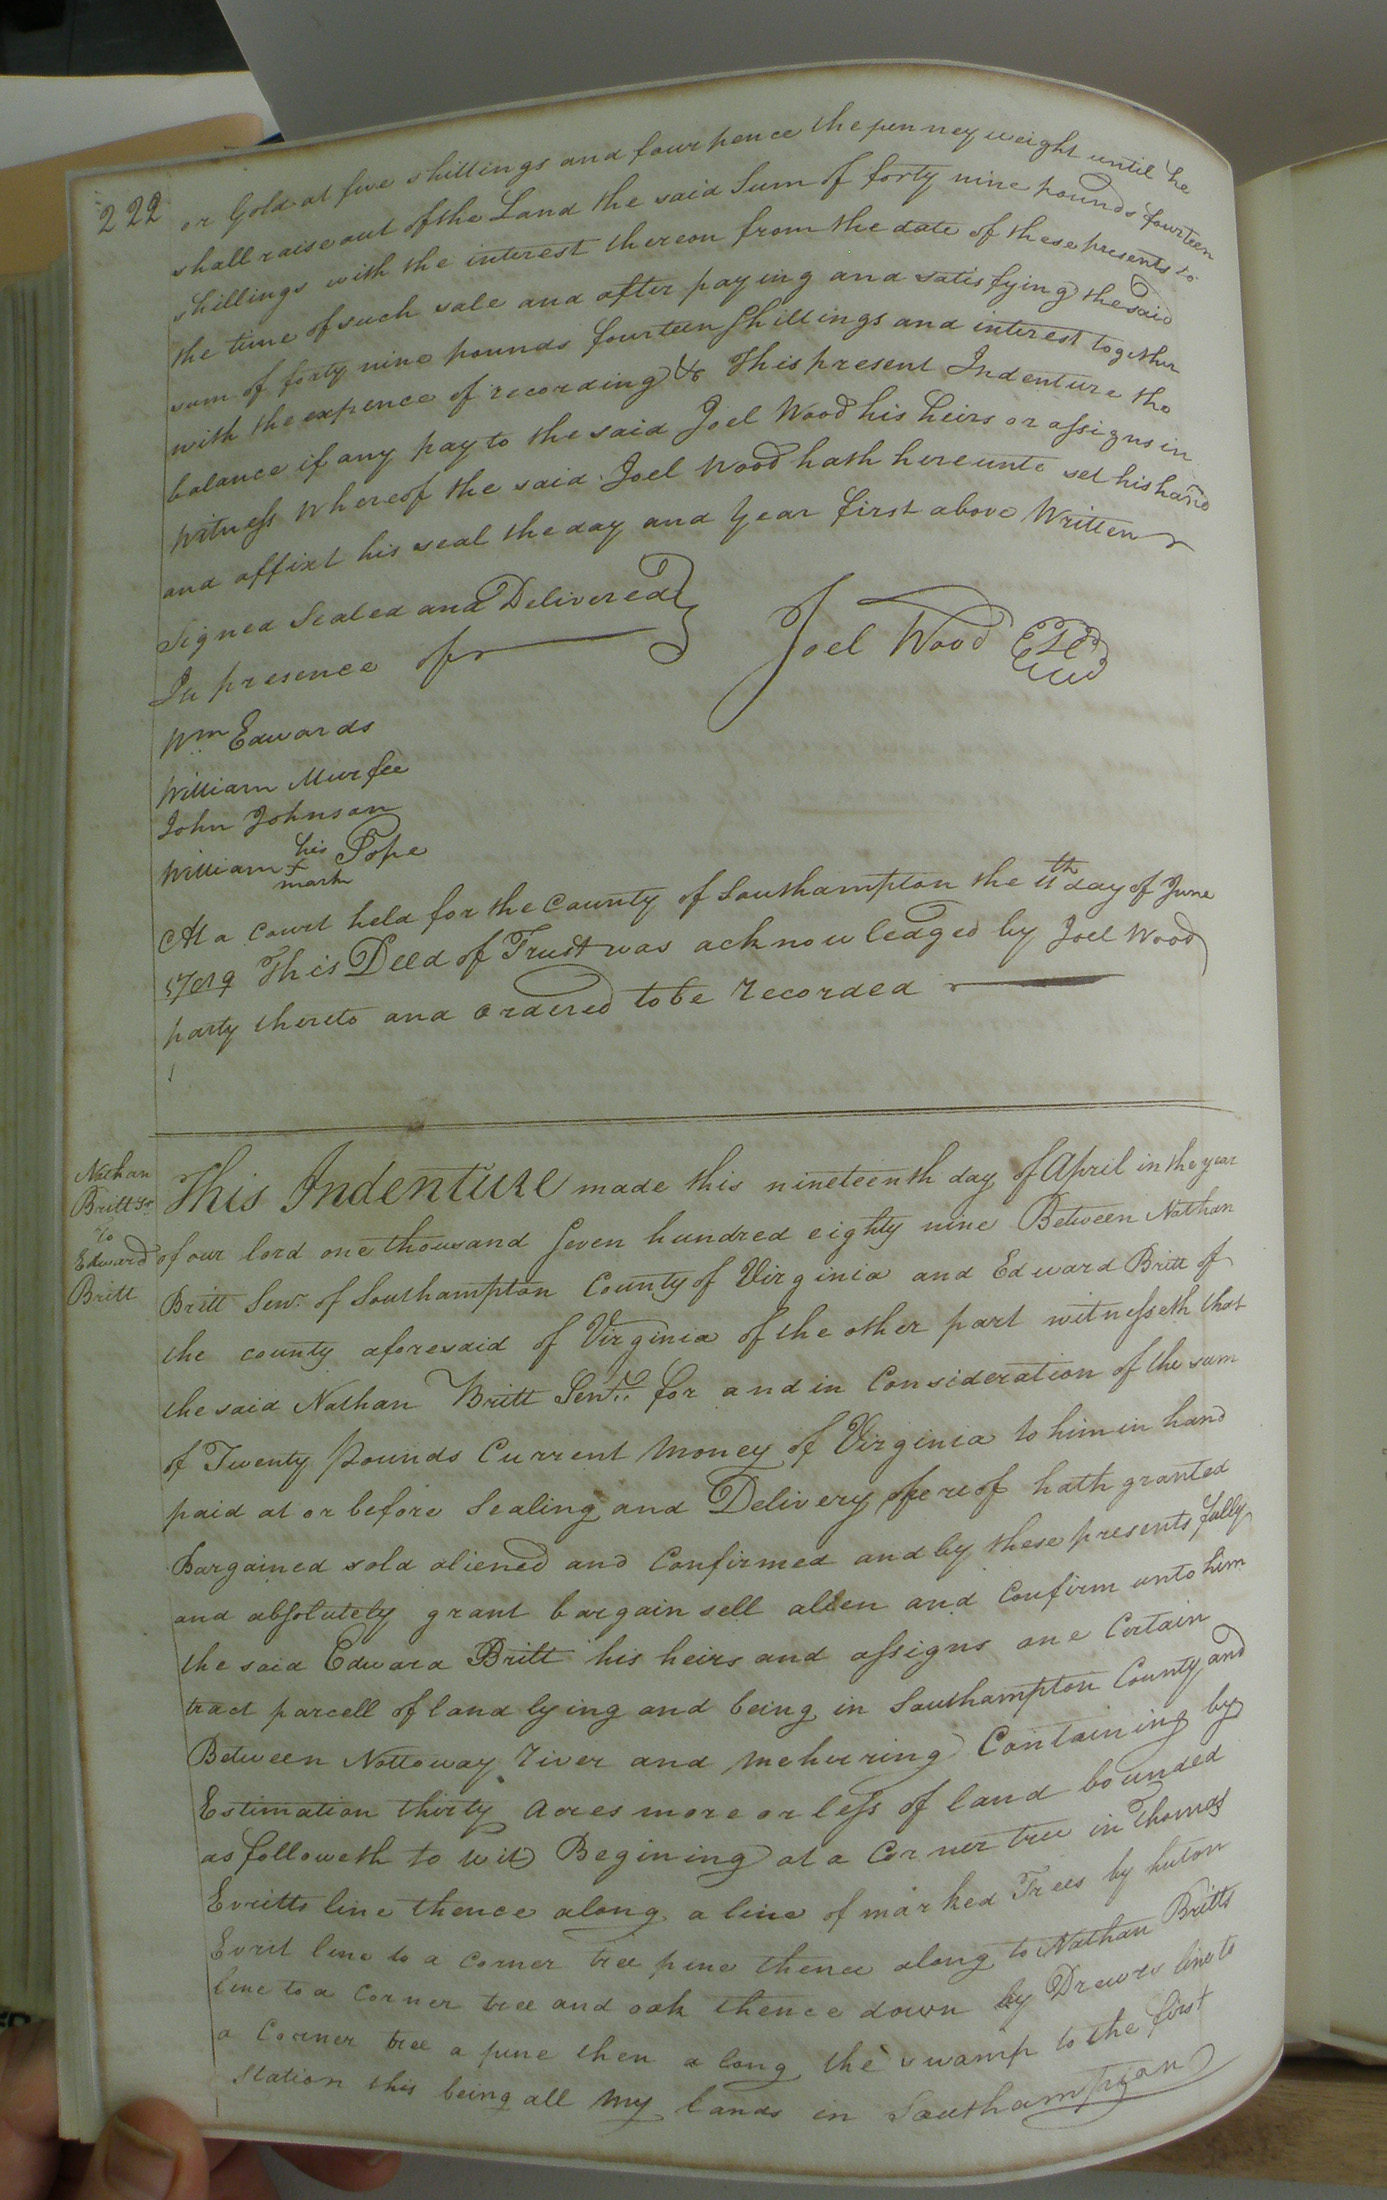 222
or Gold at five shillings and four pence the penney weight until he
shall raise out of the Land the said Sum of forty nine pounds fourteen
shillings with the interest thereon from the date of these presents to
the time of such sale and after paying and satisfying the said
sum of forty nine pounds fourteen Shillings and interest together
with the expence of recording &c This present Indenture the
balance if any pay to the said Joel Wood his heirs or assigns in
Witness Whereof the said Joel Wood hath hereunto set his hand
and affixt his seal the day and Year first above Written
Signed Sealed and Delivered
In presence of
Joel Wood
Wm Edwards
William Murfee
John Johnson
William his + mark Pope
At a Court held for the County of Southampton the 11th day of June
1789 This Deed of Trust was acknowledged by Joel Wood
party thereto and ordered to be recorded
Nathan
Britt Sr
To
Edward
Britt
This Indenture made this nineteenth day of April in the year
of our lord one thousand Seven hundred eighty nine Between Nathan
Britt Senr. of Southampton County of Virginia and Edward Britt of
the county aforesaid of Virginia of the other part witnesseth that
the said Nathan Britt Senr. for and in Consideration of the sum
of Twenty Pounds Current Money of Virginia to him in hand
paid at or before Sealing and Delivery hereof hath granted
Bargained sold aliened and Confirmed and by these presents fully
and absolutely grant bargain sell alien and Confirm unto him
the said Edward Britt his heirs and assigns one Certain
tract parcell of land lying and being in Southampton County and
Between Nottoway River and Meherring Containing by
Estimation thirty Acres more or less of land bounded
as followeth to wit Begining at a Corner tree in Thomas
Evritts line thence along a line of marked Trees by huton
Evrit line to a corner tree pine thence along to Nathan Britts
line to a Corner tree and oak thence down by Drewrs line to
a Corner tree a pine then along the swamp to the first
Station this being all my lands in Southampton